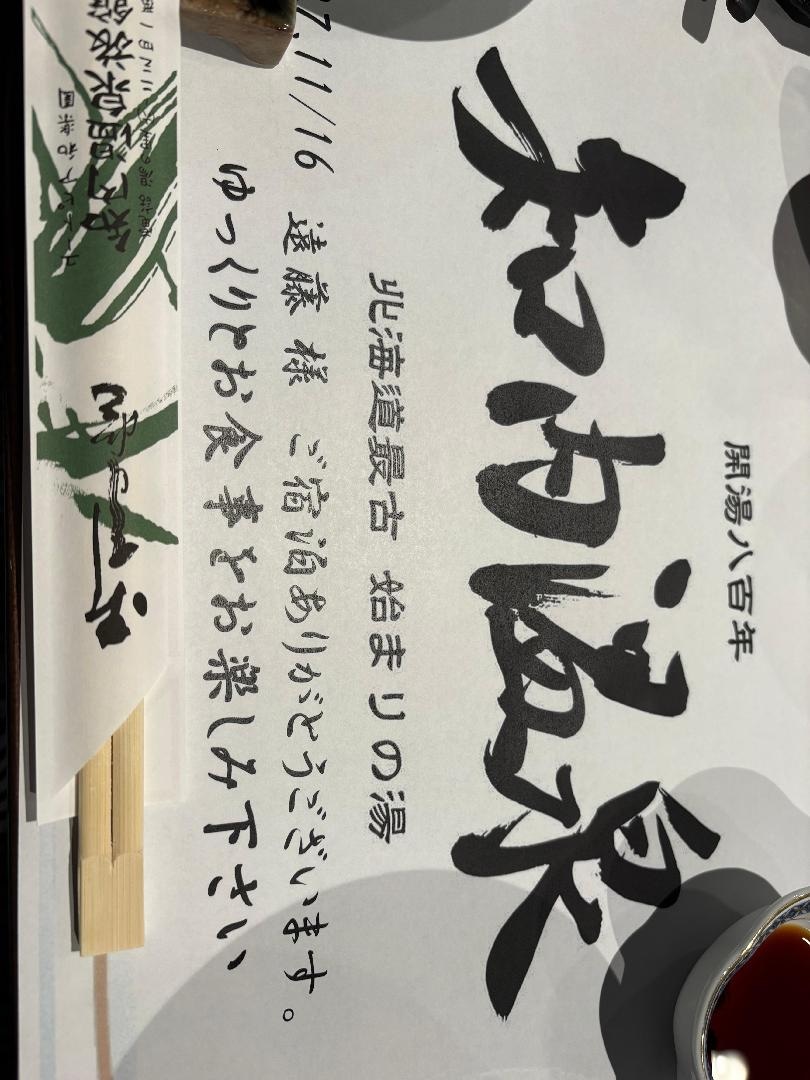 開湯八百年
知内温泉
北海道最古 始まりの湯
7.11/16 遠藤様 ご宿泊ありがとうございます。
ゆっくりとお食事をお楽しみ下さい
知内温泉旅館
ユートピア 和楽園